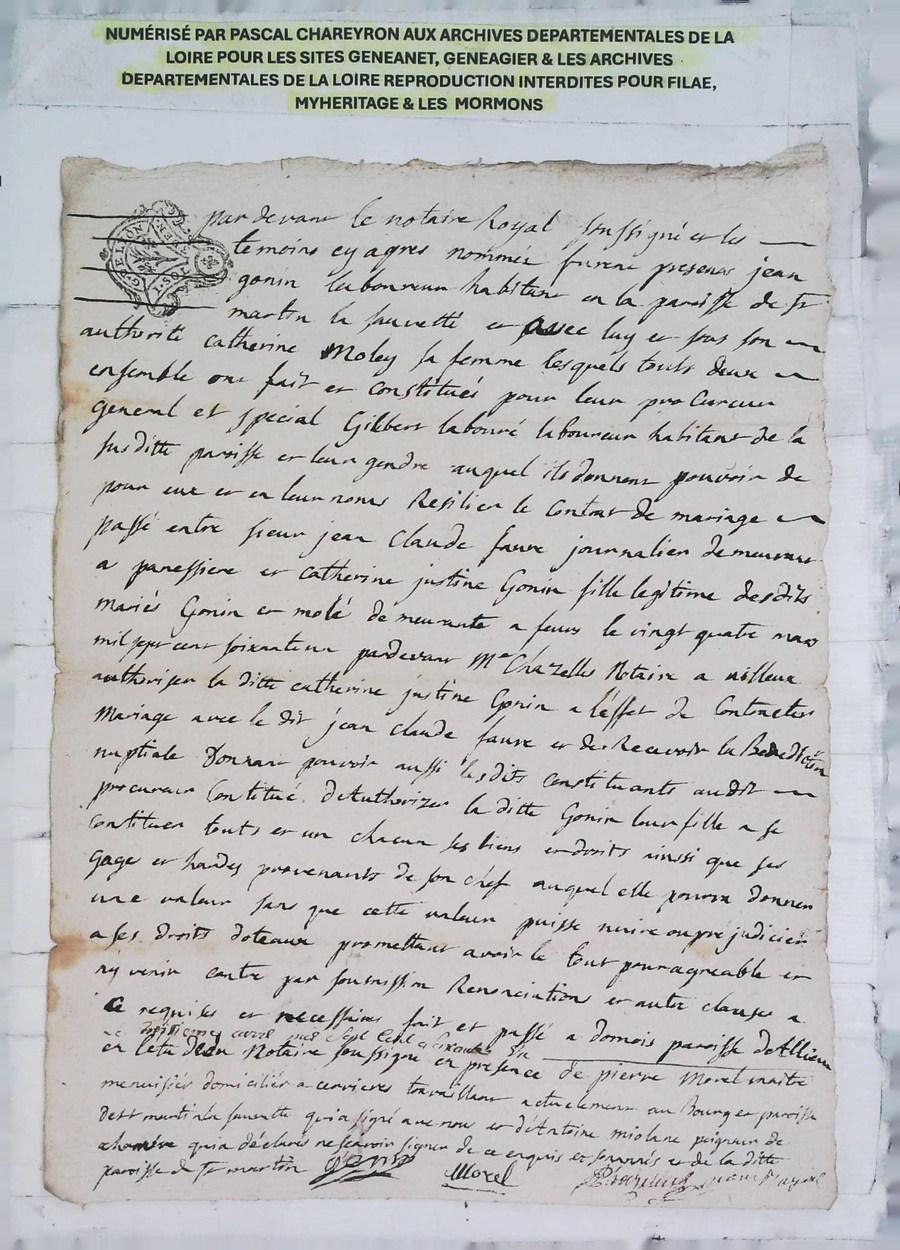 NUMÉRISÉ PAR PASCAL CHAREYRON AUX ARCHIVES DEPARTEMENTALES DE LA
LOIRE POUR LES SITES GENEANET, GENEAGIER & LES ARCHIVES
DEPARTEMENTALES DE LA LOIRE REPRODUCTION INTERDITES POUR FILAE,
MYHERITAGE & LES MORMONS
par devant le notaire Royal soussigné et les
temoins cy apres nommés furent presens jean
gonin laboureur habitant en la paroisse de St
martin la sauveté et avec luy et sous son
authorité catherine Moley sa femme lesquels touts deux
ensemble ont fait et constitués pour leur procureur
general et special Gilbert labouré laboureur habitant de la
susditte paroisse et leur gendre auquel ils donnent pouvoir de
pour eux et en leur noms Resilier le Contrat de mariage
passé entre sieur jean Claude faure journalier demeurant
a et catherine justine Gonin fille legitime desdits
mariés Gonin et molé demeurante a feurs le vingt quatre mars
mil sept cent soixante un pardevant Me Chazelles Notaire a
authoriser la ditte catherine justine Gonin a l'effet de Contracter
Mariage avec le dit jean claude faure et de Recevoir la Benediction
nuptiale Donnant pouvoir aussi lesdits constituants audit
procureur Constitué d'Authorizer la ditte Gonin leur fille a se
Constituer touts et un chacun ses biens et droits ainsi que ses
gages et hardes provenants de son chef auquel elle pourra donner
une valeur sans que cette valeur puisse nuire ou préjudicier
a ses droits doteaux promettant avoir le tout pour agreable et
ny venir contre par soumission Renonciations et autre clauses a
ce requises et necessaires fait et passé a domois paroisse d'Allieu
avril mil sept cent soixante un
en l'etude du Notaire soussigné en presence de pierre Morel maitre
menuisier domicilié a cervieres travaillant actuelement au Bourg et paroisse
de st martin la sauveté qui a signé avec nous et d'Antoine miolane peigneur de
chanvre qui a déclaré ne scavoir signer de ce enquis et sommés et de la ditte
paroisse de St martin
Morel